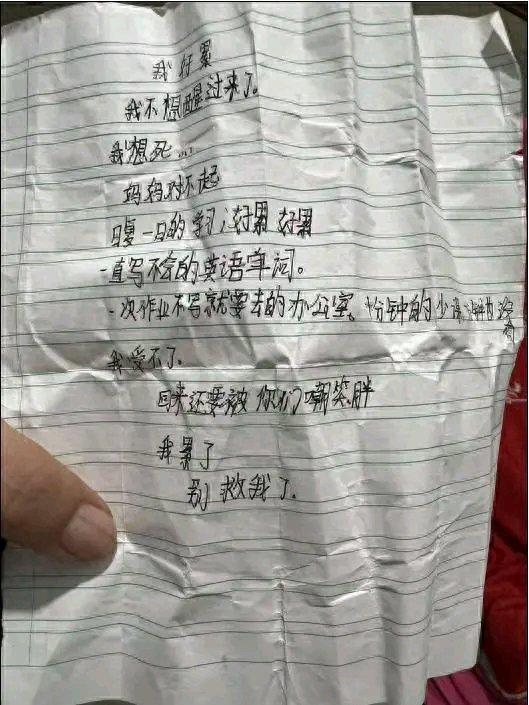 我好累
我不想醒过来了。
我想死...
妈妈对不起
日复一日的学习,好累 好累
一直写不会的英语单词。
一次作业不写就要去的办公室。十分钟的少课
我受不了.
回来还要被你们嘲笑胖
我累了
别救我了.